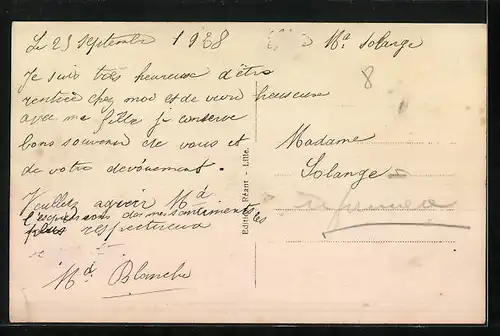 Le 25 Septembre 1938
Je suis très heureuse d'être
rentrée chez moi et de vivre heureuse
avec ma fille je conserve
bons souvenir de vous et
de votre dévouement.
Veuillez agréer Md
l'expressions de mes sentiments les
plus respectueux
Md Blanche
Edition Réant - Lille.
Ma Solange
8
Madame
Solange